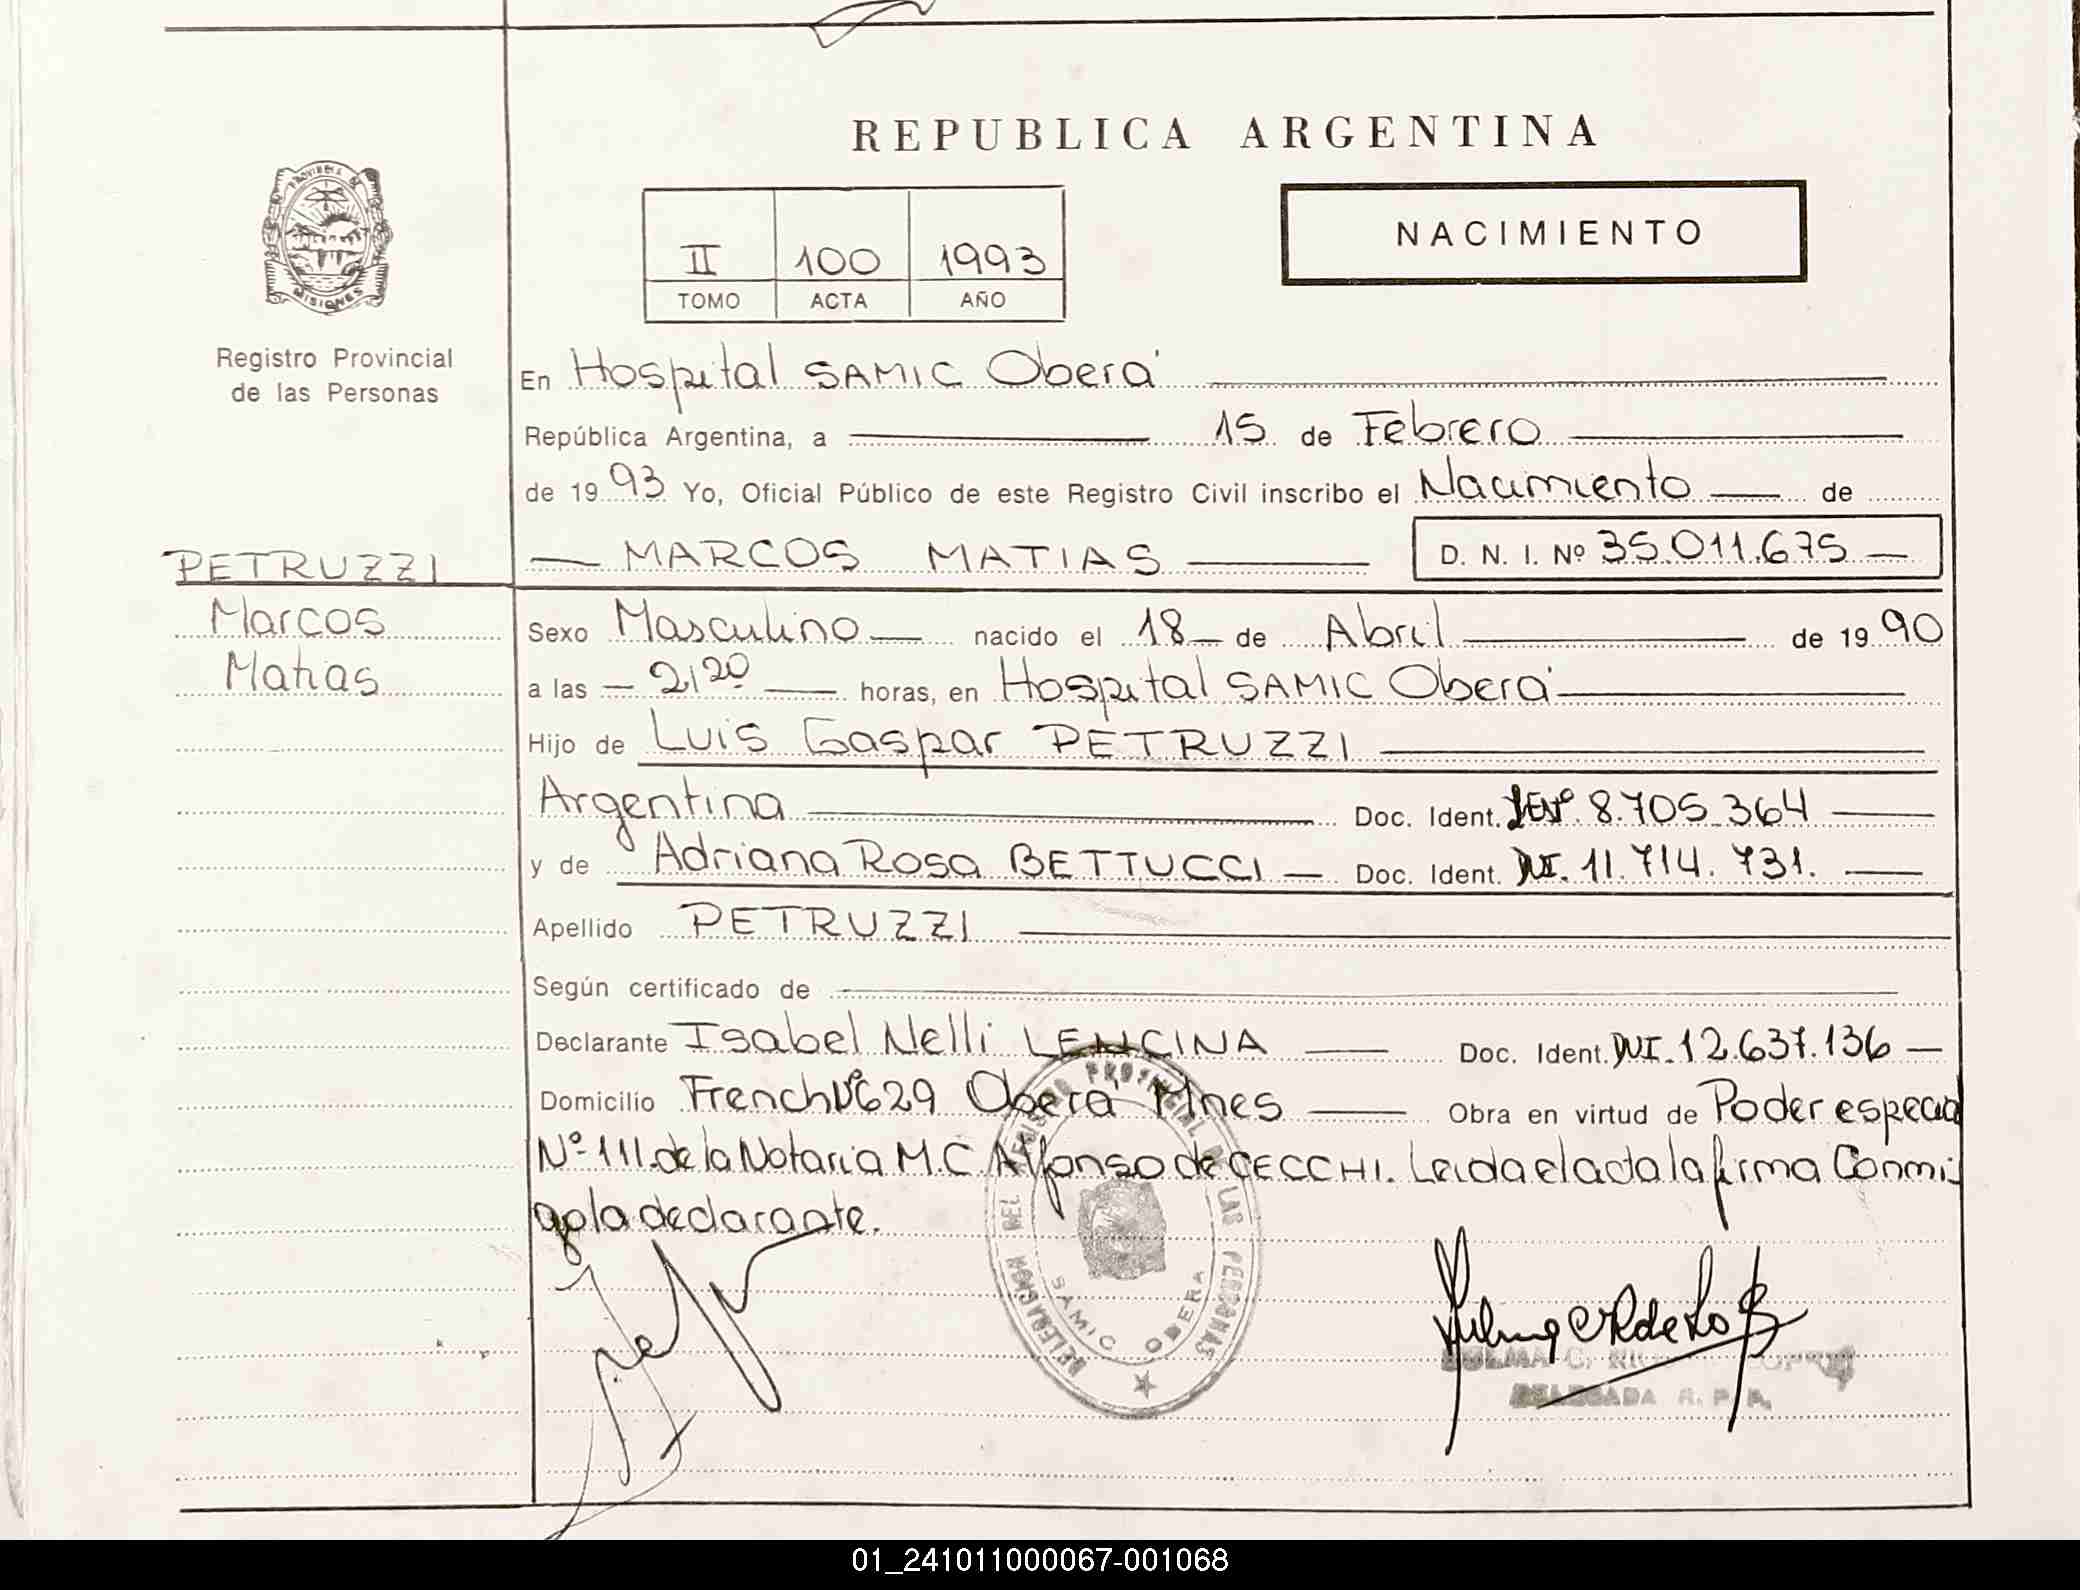 REPUBLICA ARGENTINA
II 100 1993
TOMO ACTA AÑO
NACIMIENTO
PROVINCIA DE
MISIONES
Registro Provincial
de las Personas
En Hospital SAMIC Oberá
República Argentina, a 15 de Febrero
de 1993 Yo, Oficial Público de este Registro Civil inscribo el Nacimiento de
MARCOS MATIAS D. N. I. Nº 35.011.675
PETRUZZI
Marcos
Matias
Sexo Masculino nacido el 18 de Abril de 1990
a las 21,20 horas, en Hospital SAMIC Oberá
Hijo de Luis Gaspar PETRUZZI
Argentina Doc. Ident. LENº 8.705.364
y de Adriana Rosa BETTUCCI Doc. Ident. DNI. 11.714.731.
Apellido PETRUZZI
Según certificado de
Declarante Isabel Nelli LENCINA Doc. Ident. DNI. 12.637.136
Domicilio French Nº 629 Oberá Mnes Obra en virtud de Poder especial
Nº 111 de la Notaria M.C. Alfonso de CECCHI. Leida el acta la firma Conmi-
go la declarante.
DELEGACION DEL REGISTRO PROVINCIAL DE LAS PERSONAS
SAMIC OBERA
DELEGADA R. P. P.
01_241011000067-001068